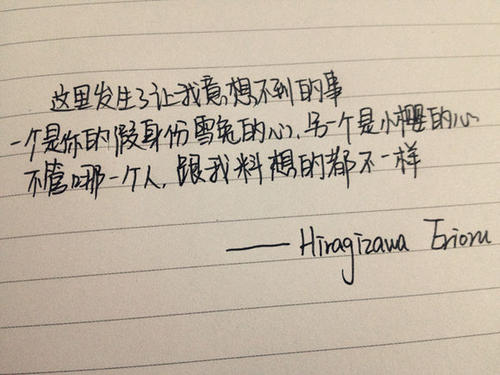 这里发生了让我意想不到的事
一个是你的假身份雪兔的心,另一个是小樱的心
不管哪一个人,跟我料想的都不一样
—— Hiragizawa Erioru